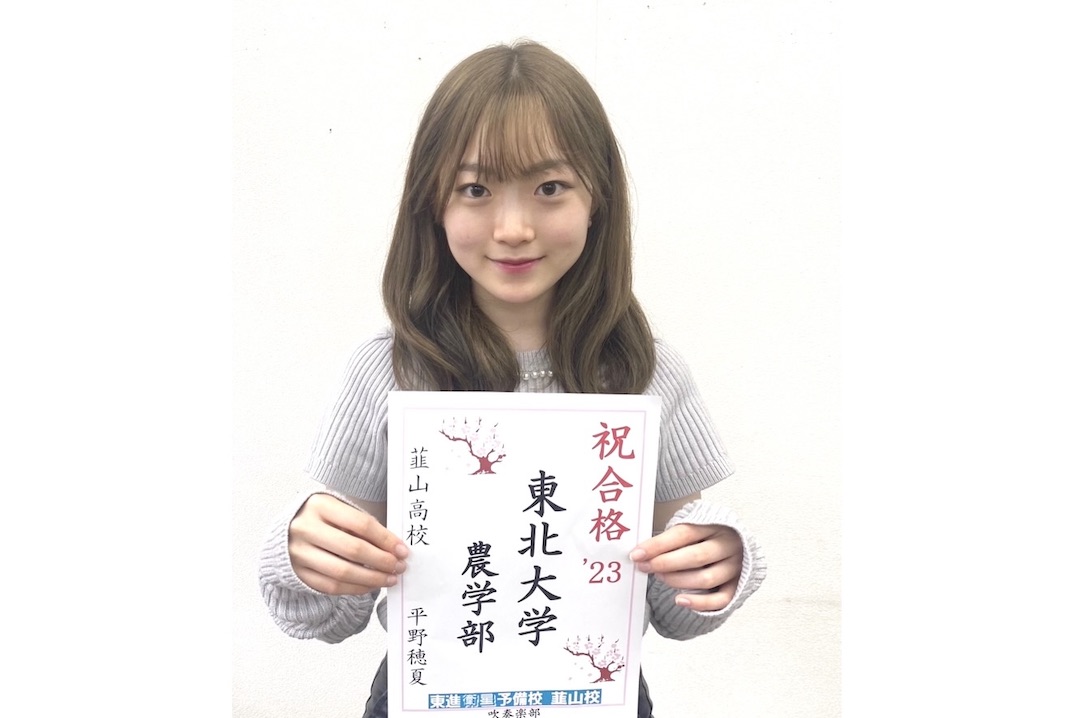 祝合格
'23
東北大学
農学部
韮山高校
平野穂夏
東進衛星予備校 韮山校
吹奏楽部